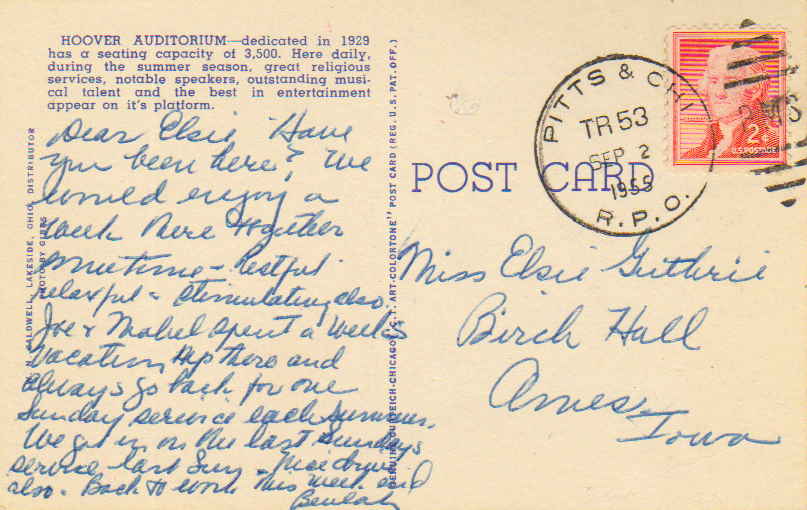 HOOVER AUDITORIUM—dedicated in 1929
has a seating capacity of 3,500. Here daily,
during the summer season, great religious
services, notable speakers, outstanding musi-
cal talent and the best in entertainment
appear on it's platform.
Dear Elsie Have
you been here? We
would enjoy a
week there together
sometime - Restful
relaxful & stimulating also.
Joe & Mabel spent a week's
vacation up there and
always go back for one
Sunday service each summer.
We got in on the last Sundays
service last Sun - Nice drive
also. Back to work this week end
Beulah
CALDWELL, LAKESIDE, OHIO, DISTRIBUTOR
PHOTO BY
GENUINE CURTEICH-CHICAGO "C.T. ART-COLORTONE" POST CARD (REG. U.S. PAT. OFF.)
POST CARD
PITTS & CHI
TR 53
SEP 2
1955
R.P.O.
RMS
2¢
U.S. POSTAGE
Miss Elsie Guthrie
Birch Hall
Ames
Iowa